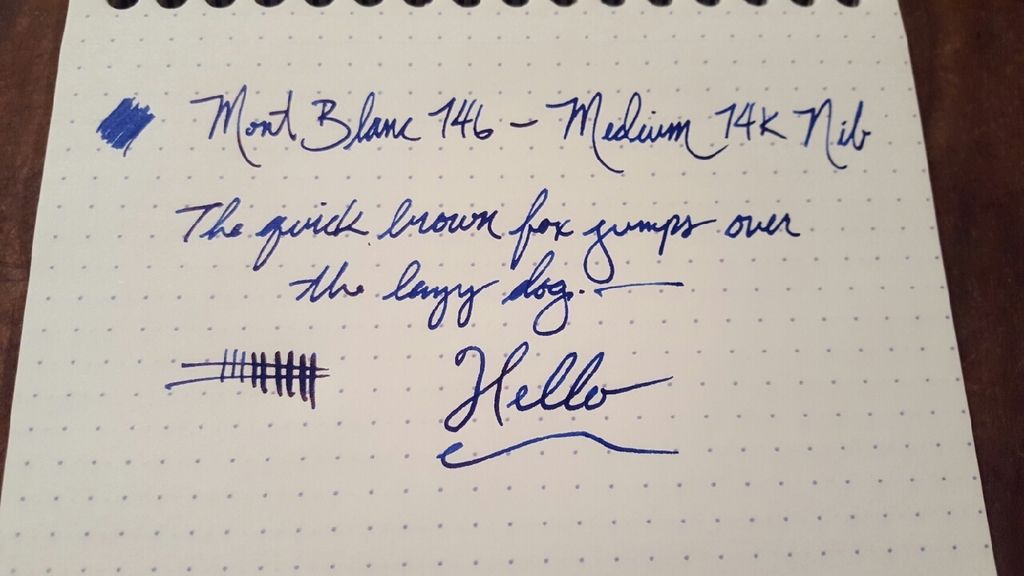 Mont Blanc 146 - Medium 14K Nib
The quick brown fox jumps over
the lazy dog.
Hello